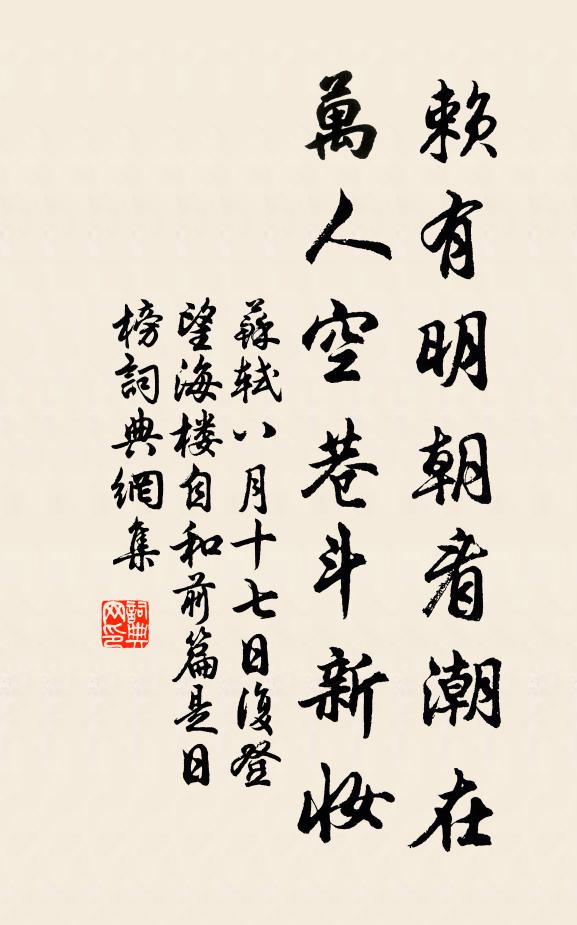 赖有明朝看潮在
萬人空巷斗新妝
蘇軾八月十七日復登
望海楼自和前篇是日
榜詞典網集
詞典
网印